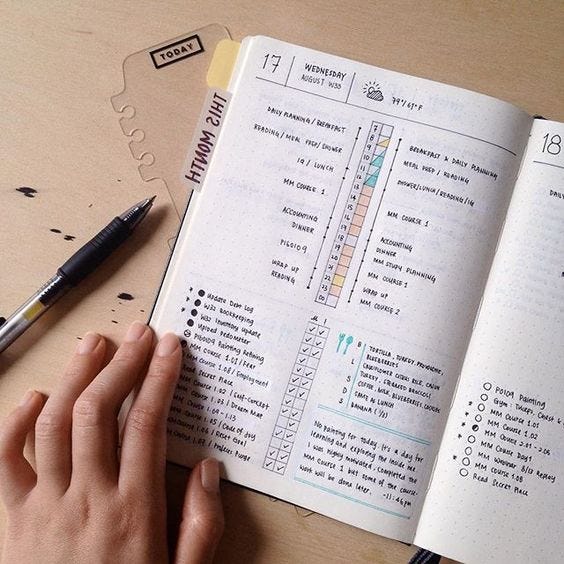 TODAY
THIS MONTH
17
WEDNESDAY
AUGUST W33
79°/61°F
DAILY PLANNING / BREAKFAST
READING / MEAL PREP / SHOWER
IG / LUNCH
MM COURSE 1
ACCOUNTING
DINNER
P16019
WRAP UP
READING
7
8
9
10
11
12
13
14
15
16
17
18
19
20
21
22
23
00
BREAKFAST & DAILY PLANNING
MEAL PREP / READING
SHOWER/LUNCH/READING/IG
MM COURSE 1
ACCOUNTING
DINNER
MM STUDY PLANNING
MM COURSE 1
WRAP UP
MM COURSE 2
Update Debt Log
W32 Bookkeeping
W32 Inventory Update
Upload Pedometer
P16019 Painting Refining
MM Course 1.01 / Fear
MM Course 1.08 / Employment
Read Secret Place
MM Course 1.02 / Self-Concept
Course 1.03 / Dream Man
1.04 - 1.13
1.05 / Code of Joy
1.06 / Reset Goal
1.07 / Process Purge
B TORTILLA, TURKEY, PROVOLONE,
BLUEBERRIES
L CAULIFLOWER RICE, CALIN
TURKEY, STEAMED BROCCOLI
S COFFEE, MILK, BLUEBERRIES, CHOCOLATE
D SAME AS LUNCH
S BANANA (1/2)
No painting for today. It's a day for
learning and exploring the inside me.
I was highly motivated, completed the
MM Course 1 but some of the course-
work will be done later. -11:46pm
18
DAILY
P0109 Painting
Gym: Tricep, Chest &
MM Course 1.01
MM Course 1.02
MM Course 2.01 - 2.06
MM Course Day 1
MM Webinar 8/13 Replay
Read Secret Place